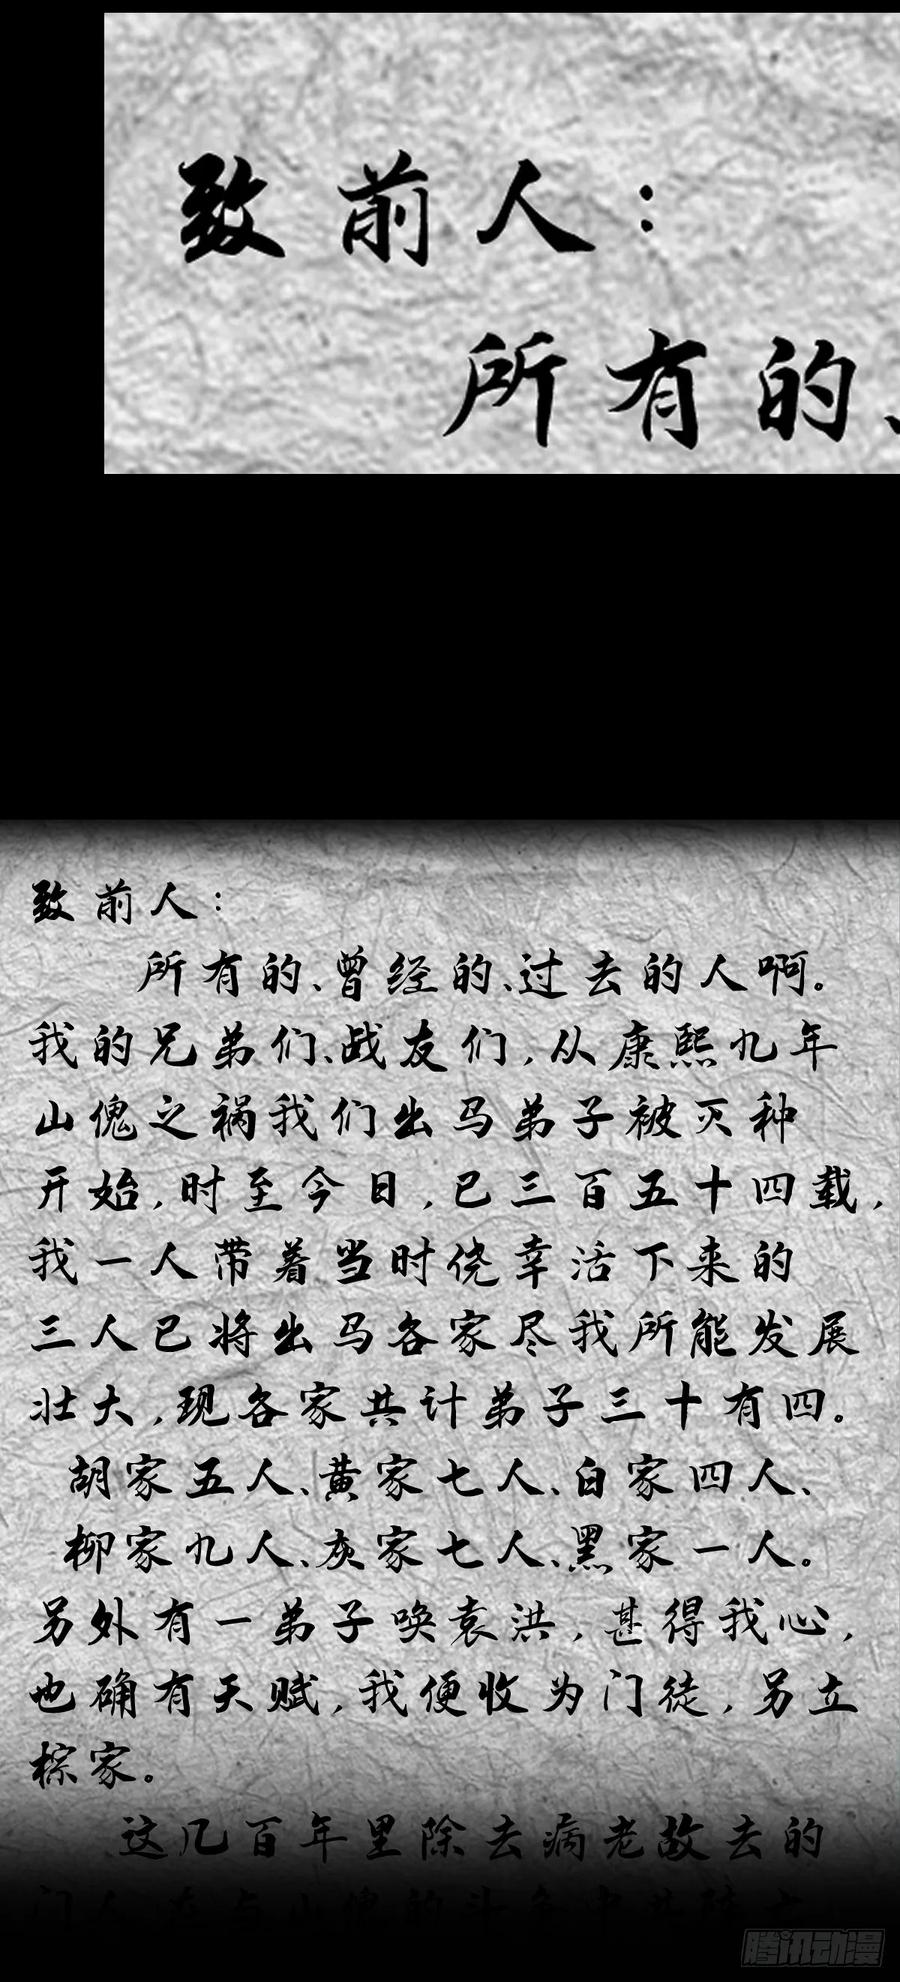 致前人：
所有的、
致前人：
所有的、曾经的、过去的人啊。
我的兄弟们、战友们，从康熙九年
山傀之祸我们出马弟子被灭种
开始，时至今日，已三百五十四载，
我一人带着当时侥幸活下来的
三人已将出马各家尽我所能发展
壮大，现各家共计弟子三十有四。
胡家五人、黄家七人、白家四人、
柳家九人、灰家七人、黑家一人。
另外有一弟子唤袁洪，甚得我心，
也确有天赋，我便收为门徒，另立
棕家。
这几百年里除去病老故去的
门人，在与山傀的斗争中共阵亡
腾讯动漫